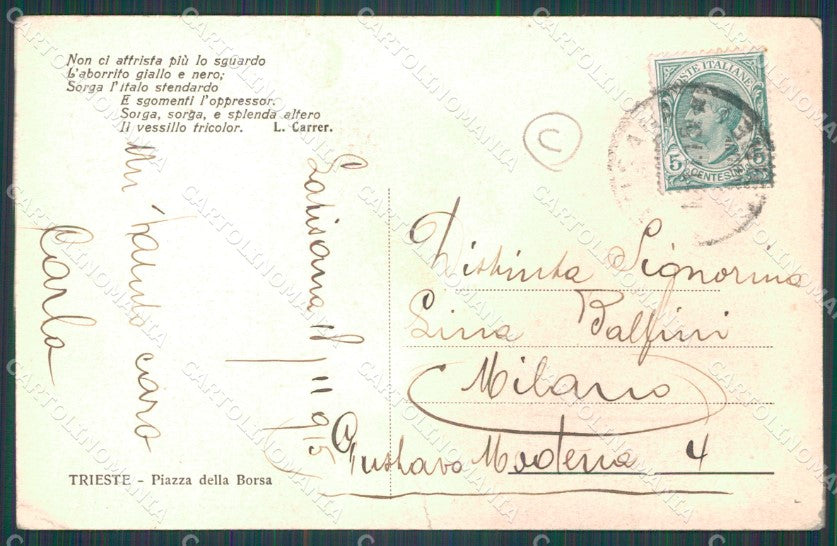 Non ci attrista più lo sguardo
L'aborrito giallo e nero;
Sorga l'italo stendardo
E sgomenti l'oppressor.
Sorga, sorga, e splenda altero
Il vessillo tricolor. L. Carrer.
POSTE ITALIANE
5 5
CENTESIMI
C
Latisana 18/11 915
Un saluto caro
Carla
Distinta Signorina
Lina Balfini
Milano
Gustavo Modena 4
TRIESTE - Piazza della Borsa
CARTOLINOMANIA